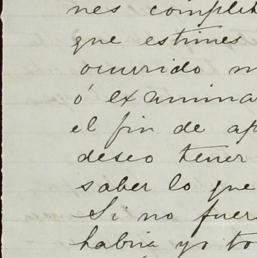 nes complet
que estimes
ocurrido m
ó examina
el fin de ap
deseo tener
saber lo que
Si no fuer
habria yo to